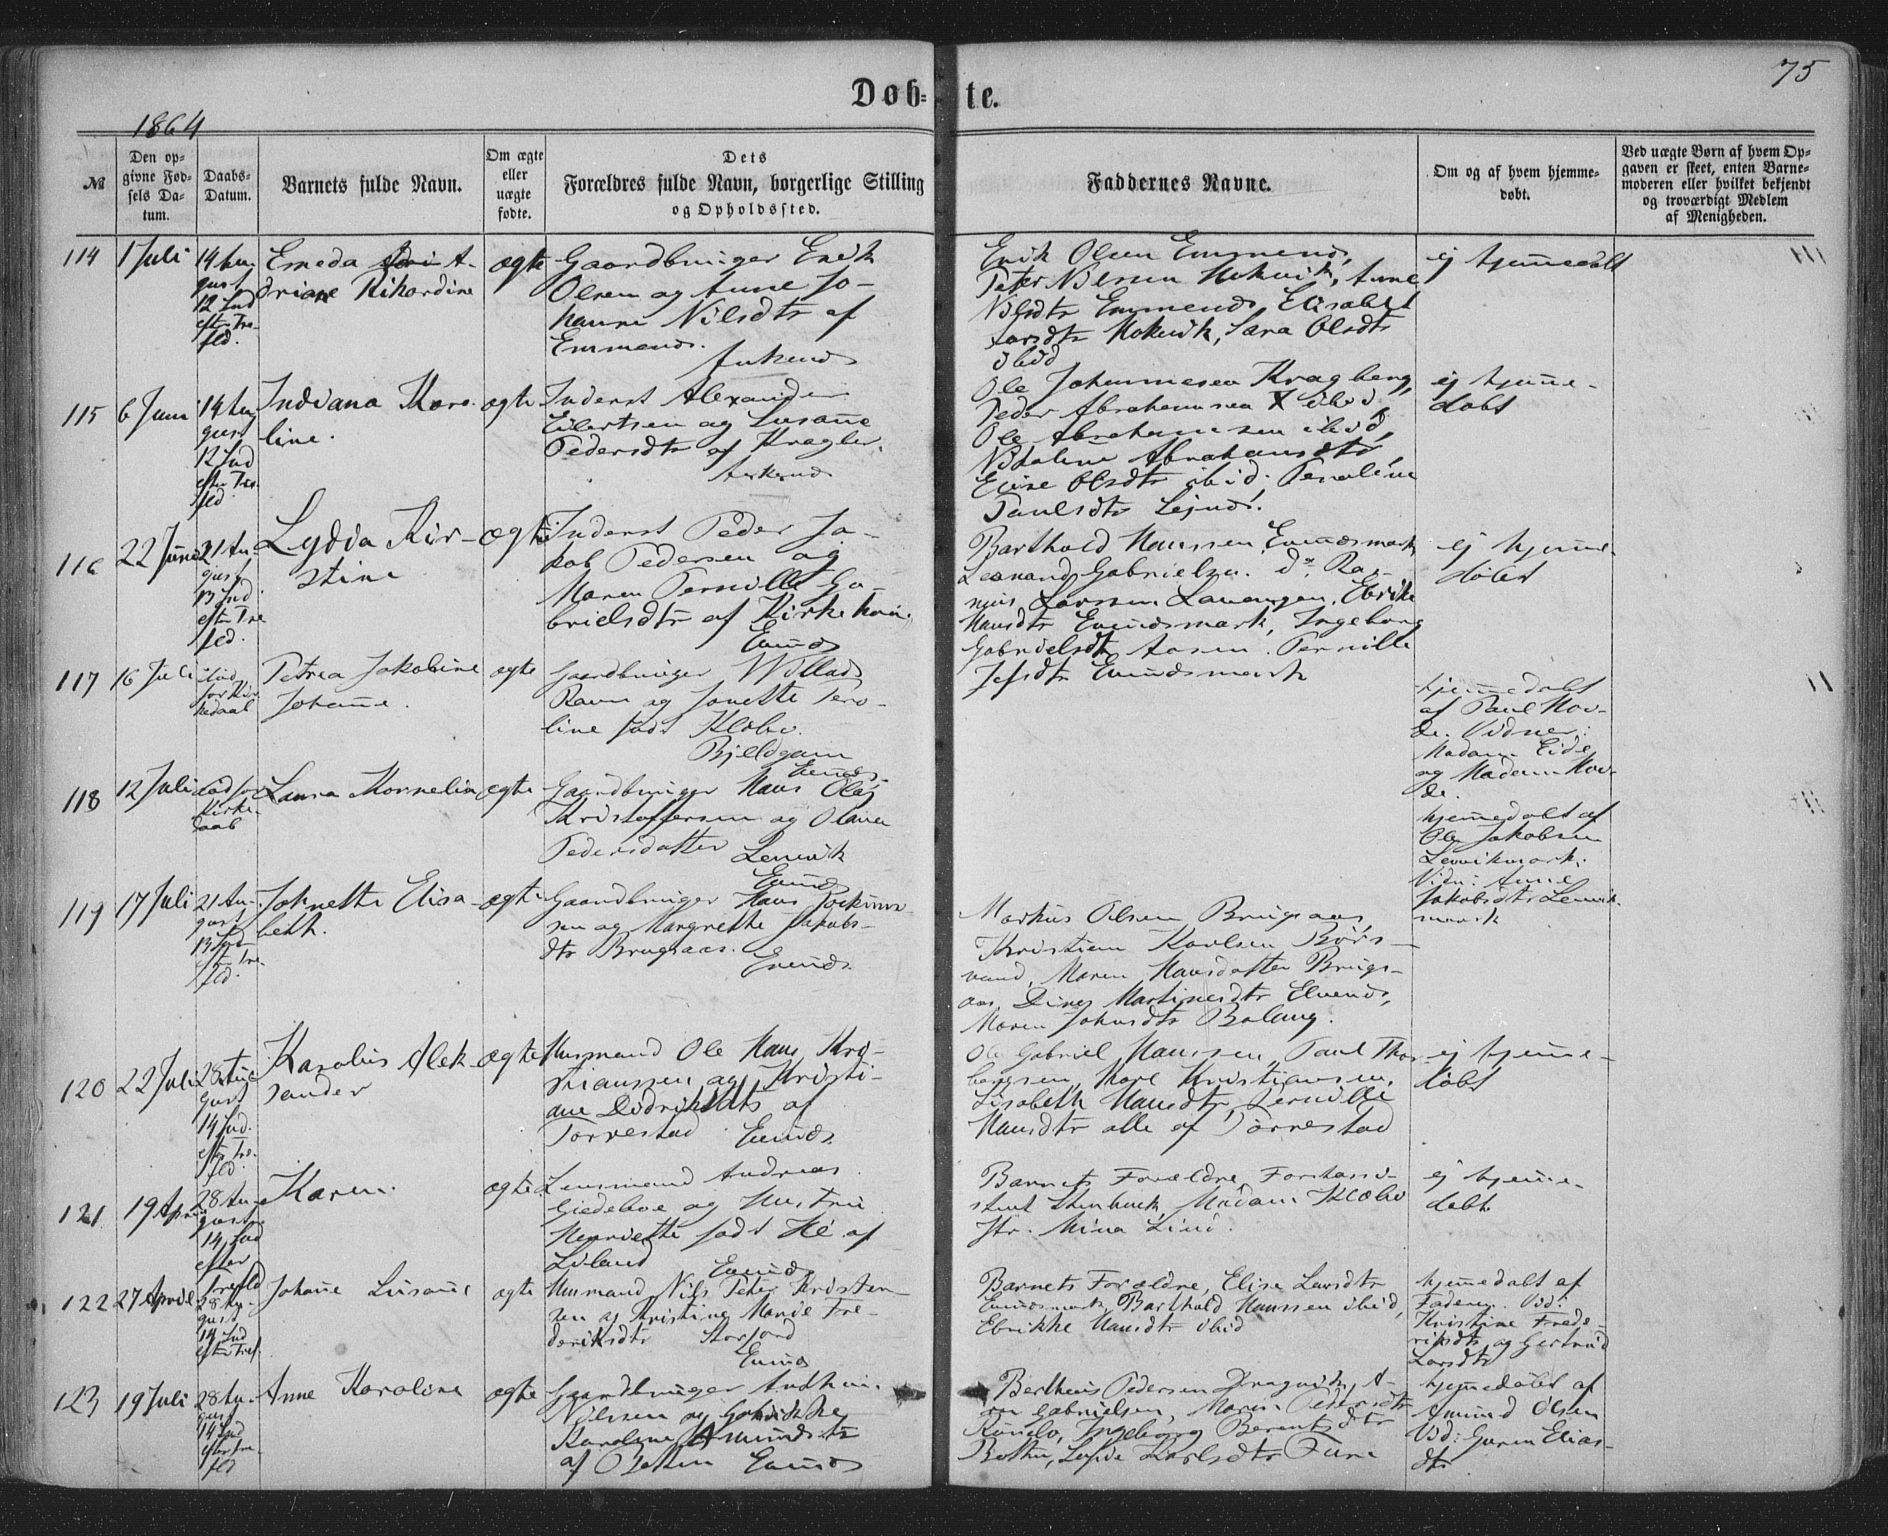 75
Døb-te.
1864
№
Den op-
givne Fød-
sels Da-
tum.
Daabs-
Datum.
Barnets fulde Navn.
Om ægte
eller
uægte
fødte.
Dets
Forældres fulde Navn, borgerlige Stilling
og Opholdssted.
Faddernes Navne.
Om og af hvem hjemme-
døbt.
Ved uægte Børn af hvem Op-
gaven er skeet, enten Barne-
moderen eller hvilket bekjendt
og troværdigt Medlem
af Menigheden.
114
1 Juli
14 Au-
gust
12 Snd
eft. Tre-
fld.
Emeda A-
driane Rikardine
ægte
Gaardbruger Erik
Olsen og Anne Jo-
hanna Nilsdtr af
Emmenes.
Ankenes
Erik Olsen Emmenes,
Peter Nilssen Hokvik, Anne
Nilsdtr Emmenes, Elisabet
Larsdtr Hokvik, Sara Olsdtr
ibid
ej hjemmedøbt
115
6 Juni
14 Au-
gust
12 Snd
efter Tre-
fld.
Indiana Karo-
line.
ægte
Inderst Alexander
Eilertsen og Susanne
Pedersdtr af Kragber.
Ankenes
Ole Johannesen Kragberg,
Peder Abrahamsen ibid,
Ole Abrahamsen ibid,
Nikoline Abrahamsdtr,
Elise Olsdtr ibid. Pernoline
Paulsdtr
ej hjemme-
døbt
116
22 Juni
21 Au-
gust
13 Snd.
efter Tre
fld.
Lydia Kir-
stine
ægte
Inderst Peder Ja-
kob Pedersen og
Maren Pernille Ga-
brielsdtr af Kirkehavn
Evenes
Barthold Hanssen Evenesmark
Leonard Gabrielsen. do. Ra-
nius Larssen Lavangen, Ebrike
Hansdtr Evenesmark, Ingeborg
Gabrielsdtr Aasen. Pernille
Jensdtr Evenesmark
ej hjemme-
døbt
117
16 Juli
før Kir-
kedaab
Petrea Jakobine
Johanne.
ægte
Gaardbruger Willads
Ravn og Jonette Pero-
line født Klæbo.
Bjeldgam
Evenes
hjemmedøbt
af Paul Hov-
de. Vidner:
Madam Eide
og Madam Hov-
de.
118
12 Juli
død før
Kirke-
daab
Laura Kornelia
ægte
Gaardbruger Hans Olaj
Kristoffersen og Olava
Pedersdatter Lenvik
Evenes
hjemmedøbt af
Ole Jakobsen
Lenvikmark.
Vidn: Anne
Jakobsdtr Lenvik-
mark
119
17 Juli
21 Au-
gust
13 Snd
eft. Tre-
fld.
Johnette Elisa-
beth.
ægte
Gaardbruger Hans Joakims-
sen og Margrethe Jakobs-
dtr Brugsaas.
Evenes
Markus Olsen Brugsaas,
Kristian Karlsen Børs-
vand, Maren Hansdatter Brugs-
aas, Dines Martinesdtr Elvenes,
Maren Johnsdtr Balung.
120
22 Juli
28 Au-
gust
14 Snd.
efter Tre-
fld.
Karolius Alek-
sander
ægte
Husmand Ole Hans Kri-
stianssen og Kristi-
ane Didriksdtr af
Tørrestad Evenes
Ole Gabriel Hanssen, Paul Thor-
bergsen, Karl Kristiansen,
Lisabeth Hansdtr, Pernille
Hansdtr alle af Tørrestad
ej hjemme-
døbt
121
19 April
28 Au-
gust
14 Snd
efter
trefld
Karen.
ægte
Lensmand Andreas
Giæver og Hustru
Henriette født af
Liland Evenes
Barnets Forældre, Forstassi-
stent Madam Klæbo
Fr. Mina Lind.
ej hjemme-
døbt
122
27 April
28 Au-
gust
14 Snd
efter Tref.
Johanne Susanne
ægte
Husmand Nils Peter Kristen-
sen og Kristine Marie Fre-
deriksdtr Storjord
Evenes
Barnets Forældre, Elise Larsdtr
Evenesmark, Barthold Hanssen ibid,
Ebrikke Hansdtr ibid
hjemmedøbt af
Faderen. Vid:
Kristine Frede-
riksdtr og Gjertrud
Larsdtr
123
19 Juli
28 Au-
gust
14 Snd
efter Tre-
fld
Anne Karoline
ægte
Gaardbruger
Nilssen og
Karoline Amundsdtr
af Botten Evenes
Bertheus Pedersen Dragvik, A-
ron Gabrielsen, Maren Pedersdtr
Ingeborg Berentsdtr
Botten, Karlsdtr
hjemmedøbt af
Amund Olsen
Vid: Guren Elias-
dtr